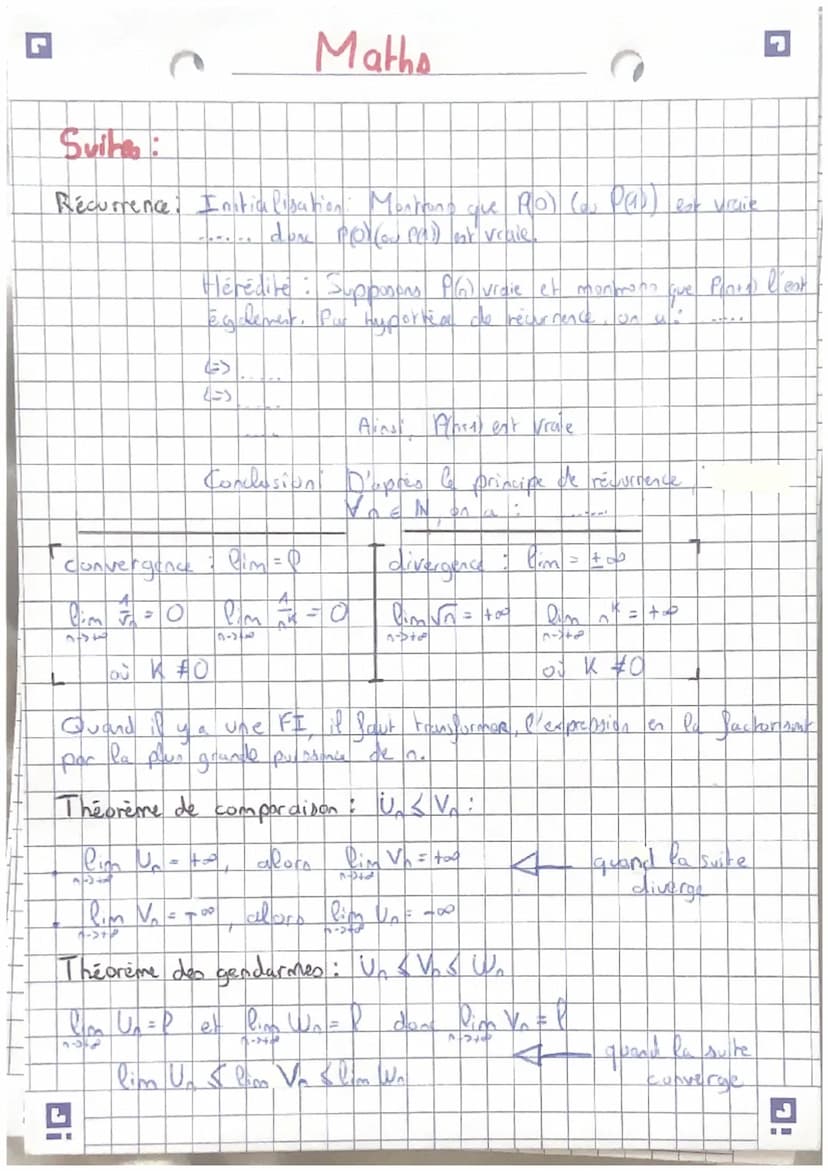 Maths
Suites :
Récurrence : Initialisation : Montrons que P(0) (ou P(1)) est vraie
...... donc P(0) (ou P(1)) est vraie.
Hérédité : Supposons P(n) vraie et montrons que P(n+1) l'est
également. Par hypothèse de récurrence, on a : .....
(=) .....
(=) .....
.....
Ainsi, P(n+1) est vraie
Conclusion : D'après le principe de récurrence,
∀n ∈ ℕ, on a : .....
convergence : lim = l
divergence : lim = ±∞
lim 1/√n = 0 lim 1/n^k = 0
n->+∞ n->+∞
où K ≠ 0
lim √n = +∞ lim n^k = +∞
n->+∞ n->+∞
où K ≠ 0
Quand il y a une FI, il faut transformer l'expression en la factorisant
par la plus grande puissance de n.
Théorème de comparaison : Un ≤ Vn :
. lim Un = +∞, alors lim Vn = +∞
n->+∞ n->+∞
quand la suite
diverge
. lim Vn = -∞, alors lim Un = -∞
n->+∞ n->+∞
Théorème des gendarmes : Un ≤ Vn ≤ Wn
lim Un = l et lim Wn = l donc lim Vn = l
n->+∞ n->+∞ n->+∞
quand la suite
converge
lim Un ≤ lim Vn ≤ lim Wn